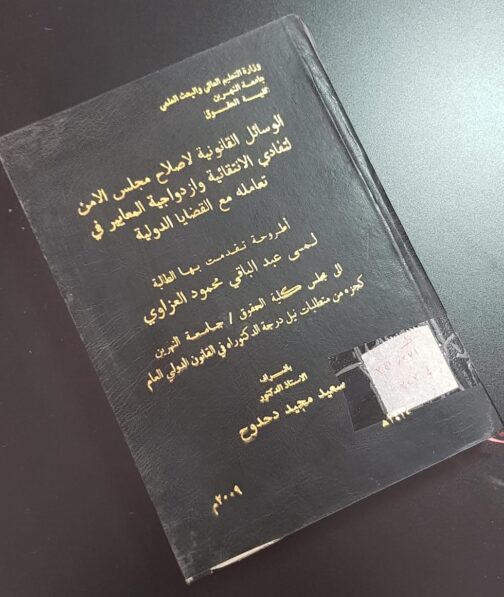 وزارة التعليم العالي والبحث العلمي
جامعة النهرين
كلية الحقوق
الوسائل القانونية لاصلاح مجلس الامن
لتفادي الانتقائية وازدواجية المعايير في
تعامله مع القضايا الدولية
أطروحة تقدمت بها الطالبة
لمى عبد الباقي محمود العزاوي
الى مجلس كلية الحقوق / جامعة النهرين
كجزء من متطلبات نيل درجة الدكتوراه في القانون الدولي العام
بإشراف
الاستاذ الدكتور
سعيد مجيد دحدوح
٢٠٠٩م